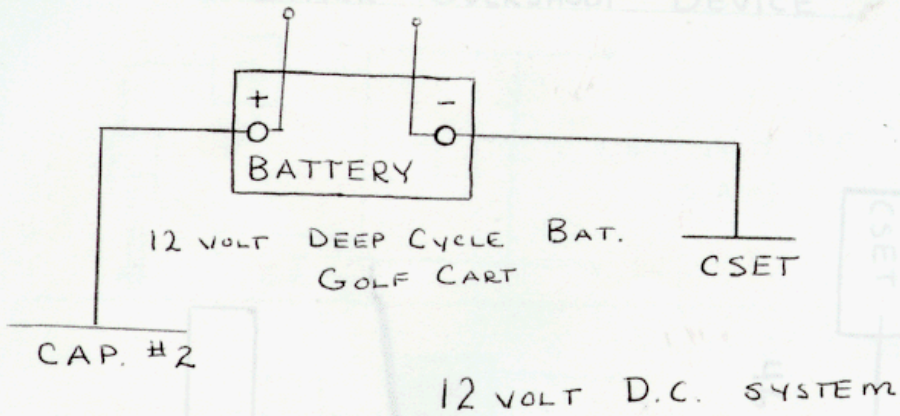 DEVICE
+ -
BATTERY
12 VOLT DEEP CYCLE BAT.
GOLF CART
CSET
CSET
CAP. #2
12 VOLT D.C. SYSTEM